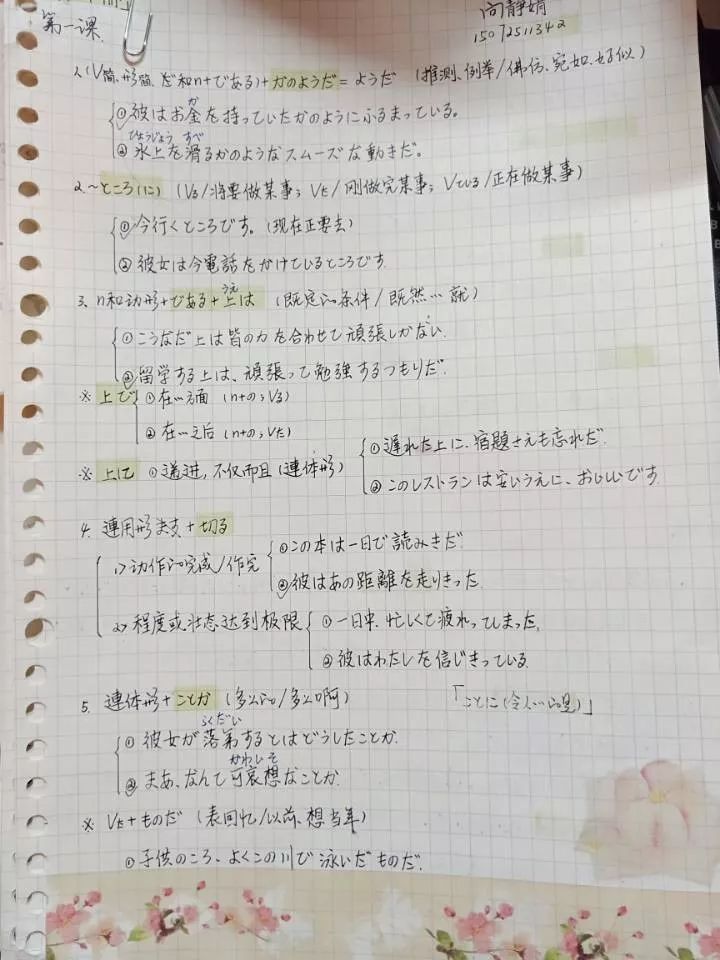 第一课
向静娟
15072511342
1.(V简、形简、だ和n+である)+かのようだ=ようだ (推测、例举/仿佛、宛如、好似)
①彼はお金を持っていたかのようにふるまっている。
か
ひょうじょう すべ
②氷上を滑るかのようなスムーズな動きだ。
2.~ところ(に) (Vる/将要做某事; Vた/刚做完某事; Vている/正在做某事)
①今行くところです。(现在正要去)
②彼女は今電話をかけているところです
3、n和动形+である+上は (既定的条件/既然…就)
うえ
①こうなだ上は皆の力を合わせて頑張しかない.
②留学する上は、頑張って勉強するつもりだ.
※ 上で ①在…方面 (n+の;Vる)
②在…之后 (n+の;Vた)
※ 上に ①递进,不仅而且(連体形)
①遅れた上に、宿題さえも忘れだ.
②このレストランは安いうえに、おいしいです.
4. 連用形+切る
1>动作的完成/作完
①この本は一日で読みきだ.
②彼はあの距離を走りきった.
2>程度或状态达到极限
①一日中、忙しくて疲れってしまった.
②彼はわたしを信じきっている
5. 連体形+ことか (多么的/多么啊)
「ことに(令人…的是)」
らくだい
①彼女が落第するとはどうしたことか.
かわいそ
②まあ、なんて可哀想なことか.
※ Vた+ものだ (表回忆/以前、想当年)
①子供のころ、よくこの川で泳いだものだ.